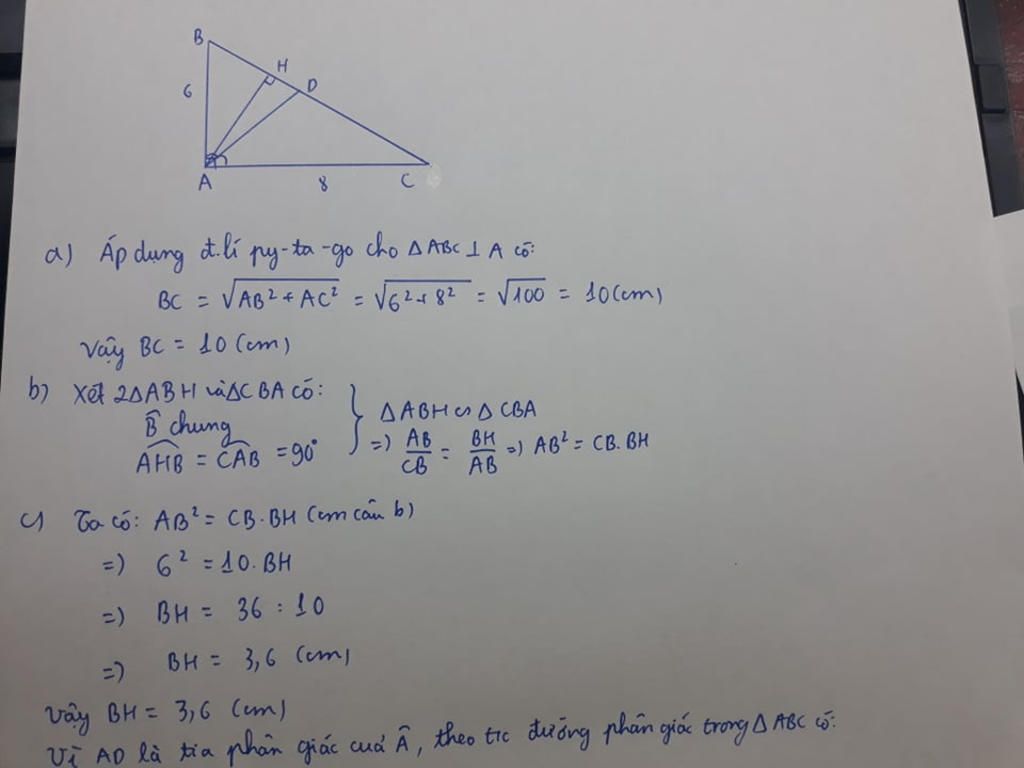 B
H
D
6
A
8
C
a) Áp dụng đ.lí py-ta-go cho △ABC ⊥ A có:
BC = √AB² + AC² = √6² + 8² = √100 = 10 (cm)
Vậy BC = 10 (cm)
b) Xét 2△ABH và △CBA có:
B̂ chung
AHB = CAB = 90°
} △ABH ∽ △CBA
=) AB/CB = BH/AB =) AB² = CB.BH
c) Ta có: AB² = CB.BH (cm câu b)
=) 6² = 10.BH
=) BH = 36 : 10
=) BH = 3,6 (cm)
Vậy BH = 3,6 (cm)
Vì AD là tia phân giác cuả Â, theo t/c đường phân giác trong △ABC có: